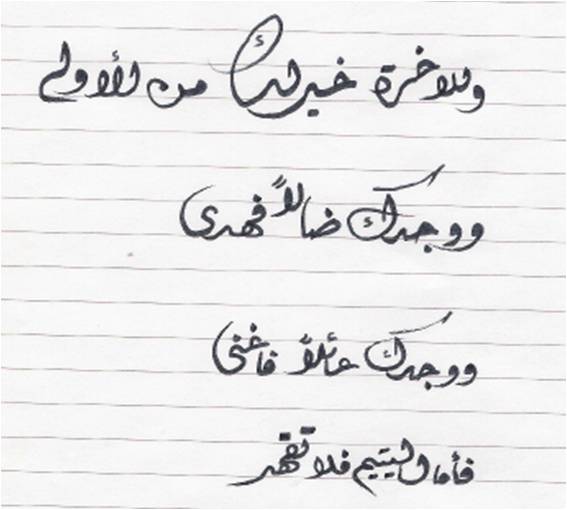 وللاخرة خير لك من الأولى
ووجدك ضالاً فهدى
ووجدك عائلاً فاغنى
فأما اليتيم فلا تقهر